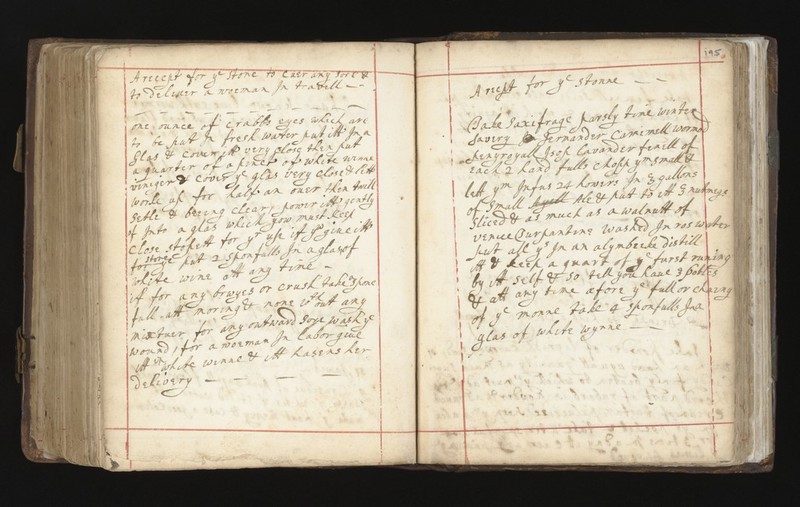 A receipt for yᵉ stone to cuer any sore &
to deliver a woeman In travill —
one ounce of crabbs eyes which are
to be put in fresh water put itt In a
Glas & Cover itt very close then put
a quarter of a pinct of white winne
viniger & Cover yᵉ glas very close & lett
worke up for half an ouer then twill
Setle & being clear, power itt gently
of Into a glas which you must keep
Close stopett for yʳ use if you give itt
for stone put 2 sponfulls In a glas of
white wine att any time —
if for any bruyes or Crush take 3 spone
full att morning & none wᵗʰout any
mixtuer, for any outward Sore wash yᵉ
wound, for a woeman In Labor give
itt wᵗʰ white winne & itt hasens her
delivery — — —
195
A recipt for yᵉ stonne — —
Take Saxifrage parsly time winter
Savery Camimell
penyroyall Isop Lavander fenill of
Each 2 hand fulls chopp yᵐ small &
lett yᵐ Infus 24 howers In 3 gallons
of Small Ale & put to itt 3 nutmegs
Sliced & as much as a walnutt of
venice turpantine washed In ros water
put all yˢ In an alymbecke distill
itt & keep a quart of yᵉ furst runing
by itt Self & So tell you have 3 botles
& att any time afore yᵉ full or chaing
of yᵉ monne take 4 sponfulls In a
glas of white wynne —